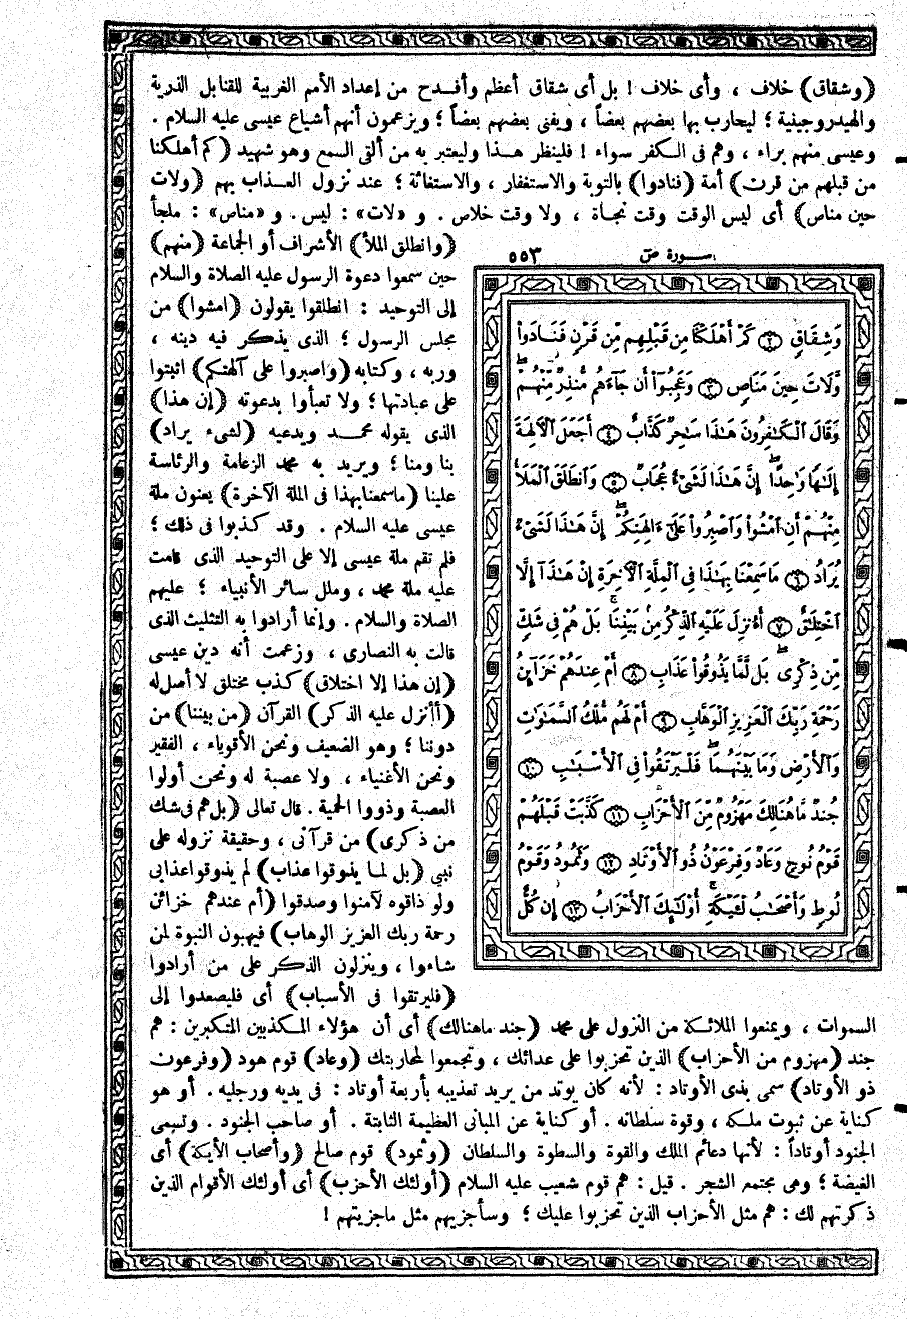 (وشقاق) خلاف ، وأى خلاف ! بل أى شقاق أعظم وأفـدح من إعداد الأمم الغربية للقنابل الذرية
والهيدروجينية ؛ ليحارب بها بعضهم بعضاً ، ويفنى بعضهم بعضاً ؛ ويزعمون أنهم أشياع عيسى عليه السلام .
وعيسى منهم براء ، وهم فى الكفر سواء ! فلينظر هـذا وليعتبر به من ألقى السمع وهو شهيد (كم أهلكنا
من قبلهم من قرن) أمة (فنادوا) بالتوبة والاستغفار ، والاستغاثة ؛ عند نزول العـذاب بهم (ولات
حين مناص) أى ليس الوقت وقت نجـاة ، ولا وقت خلاص . و «لات» : ليس . و «مناص» : ملجأ
(وانطلق الملأ) الأشراف أو الجماعة (منهم)
حين سمعوا دعوة الرسول عليه الصلاة والسلام
إلى التوحيد : انطلقوا يقولون (امشوا) من
مجلس الرسول ؛ الذى يذكر فيه دينه ،
وربه ، وكتابه (واصبروا على آلهتكم) اثبتوا
على عبادتها ؛ ولا تعبأوا بدعوته (إن هذا)
الذى يقوله محمـد ويدعيه (لشىء يراد)
بنا ومنا ؛ ويريد به محمد الزعامة والرئاسة
علينا (ماسمعنابهذا فى الملة الآخرة) يعنون ملة
عيسى عليه السلام . وقد كذبوا فى ذلك ؛
فلم تقم ملة عيسى إلا على التوحيد الذى قامت
عليه ملة محمد ، وملل سائر الأنبياء ؛ عليهم
الصلاة والسلام . وإنما أرادوا به التثليث الذى
قالت به النصارى ، وزعمت أنه دين عيسى
(إن هذا إلا اختلاق) كذب مختلق لا أصل له
(أأنزل عليه الذكر) القرآن (من بيننا) من
دوننا ؛ وهو الضعيف ونحن الأقوياء ، الفقير
ونحن الأغنياء ، ولا عصبة له ونحن أولوا
العصبة وذووا الحمية . قال تعالى (بل هم فى شك
من ذكرى) من قرآنى ، وحقيقة نزوله على
نبيى (بل لما يذوقوا عذاب) لم يذوقوا عذابى
ولو ذاقوه لآمنوا وصدقوا (أم عندهم خزائن
رحمة ربك العزيز الوهاب) فيهبون النبوة لمن
شاءوا ، وينزلون الذكر على من أرادوا
(فليرتقوا فى الأسباب) أى فليصعدوا إلى
سورة صۤ ٥٥٣
وَشِقَاقٍ ٢ كَمْ أَهْلَكْنَا مِن قَبْلِهِم مِّن قَرْنٍ فَنَادَواْ
وَّلَاتَ حِينَ مَنَاصٍ ٣ وَعَجِبُوٓاْ أَن جَآءَهُم مُّنذِرٌ مِّنْهُمْ
وَقَالَ ٱلْكَٰفِرُونَ هَٰذَا سَٰحِرٌ كَذَّابٌ ٤ أَجَعَلَ ٱلْأٓلِهَةَ
إِلَٰهًا وَٰحِدًا إِنَّ هَٰذَا لَشَىْءٌ عُجَابٌ ٥ وَٱنطَلَقَ ٱلْمَلَأُ
مِنْهُمْ أَنِ ٱمْشُواْ وَٱصْبِرُواْ عَلَىٰٓ ءَالِهَتِكُمْ إِنَّ هَٰذَا لَشَىْءٌ
يُرَادُ ٦ مَا سَمِعْنَا بِهَٰذَا فِى ٱلْمِلَّةِ ٱلْأٓخِرَةِ إِنْ هَٰذَآ إِلَّا
ٱخْتِلَٰقٌ ٧ أَءُنزِلَ عَلَيْهِ ٱلذِّكْرُ مِنۢ بَيْنِنَا بَلْ هُمْ فِى شَكٍّ
مِّن ذِكْرِى بَل لَّمَّا يَذُوقُواْ عَذَابِ ٨ أَمْ عِندَهُمْ خَزَآئِنُ
رَحْمَةِ رَبِّكَ ٱلْعَزِيزِ ٱلْوَهَّابِ ٩ أَمْ لَهُم مُّلْكُ ٱلسَّمَٰوَٰتِ
وَٱلْأَرْضِ وَمَا بَيْنَهُمَا فَلْيَرْتَقُواْ فِى ٱلْأَسْبَٰبِ ١٠
جُندٌ مَّا هُنَالِكَ مَهْزُومٌ مِّنَ ٱلْأَحْزَابِ ١١ كَذَّبَتْ قَبْلَهُمْ
قَوْمُ نُوحٍ وَعَادٌ وَفِرْعَوْنُ ذُو ٱلْأَوْتَادِ ١٢ وَثَمُودُ وَقَوْمُ
لُوطٍ وَأَصْحَٰبُ لْـَٔيْكَةِ أُوْلَٰٓئِكَ ٱلْأَحْزَابُ ١٣ إِن كُلٌّ
السموات ، ويمنعوا الملائكة من النزول على محمد (جند ماهنالك) أى أن هؤلاء المـكذبين المتكبرين : هم
جند (مهزوم من الأحزاب) الذين تحزبوا على عدائك ، وتجمعوا لمحاربتك (وعاد) قوم هود (وفرعون
ذو الأوتاد) سمى بذى الأوتاد : لأنه كان يوتد من يريد تعذيبه بأربعة أوتاد : فى يديه ورجليه . أو هو
كناية عن ثبوت ملكه ، وقوة سلطانه . أو كناية عن المبانى العظيمة الثابتة . أو صاحب الجنود . وتسمى
الجنود أوتاداً : لأنها دعائم الملك والقوة والسطوة والسلطان (وثمود) قوم صالح (وأصحاب الأيكة) أى
الغيضة ؛ وهى مجتمع الشجر . قيل : هم قوم شعيب عليه السلام (أولئك الأحزب) أى أولئك الأقوام الذين
ذكرتهم لك : هم مثل الأحزاب الذين تحزبوا عليك ؛ وسأجزيهم مثل ماجزيتهم !